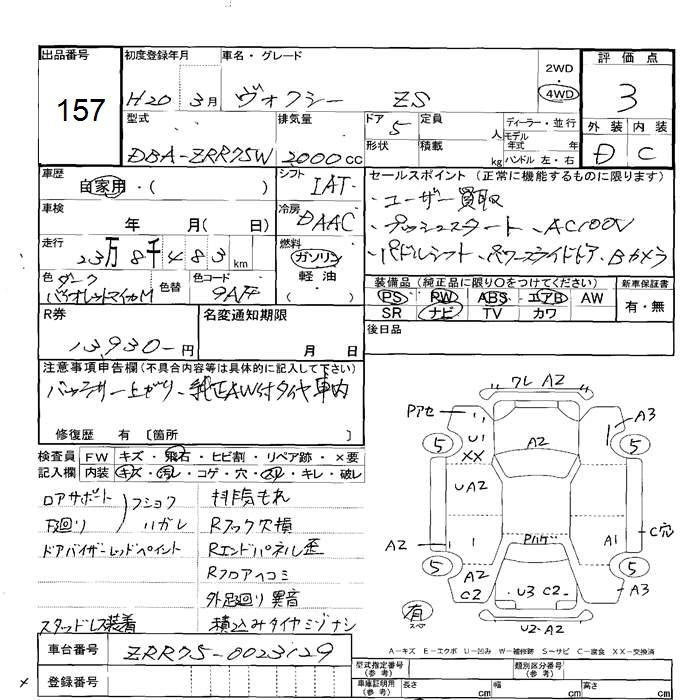 出品番号
157
初度登録年月
H20 3月
車名・グレード
ヴォクシー ZS
2WD
4WD
評価点
3
外装 内装
D C
型式
DBA-ZRR75W
排気量
2000cc
ドア
5
形状
定員
人
積載
kg
ディーラー・並行
モデル年式 年
ハンドル 左・右
車歴
自家用・( )
シフト
IAT
車検
年 月( 日)
冷房
DAAC
走行
23万8千483km
燃料
ガソリン
軽油
( )
色
ダーク
バイオレットマイカM
色替
色コード
9AF
R券
13,930-円
名変通知期限
月 日
セールスポイント(正常に機能するものに限ります)
・ユーザー買取
・プッシュスタート、AC100V
・パドルシフト、パワースライドドア、Bカメラ
装備品(純正品に限り○をつけてください)
PS RW ABS エアB AW
SR ナビ TV カワ
新車保証書
有・無
後日品
注意事項申告欄(不具合内容等は具体的に記入して下さい)
バッテリー上がり、純正AW付タイヤ車内
修復歴 有 〔箇所 〕
検査員記入欄
FW キズ・飛石・ヒビ割・リペア跡・×要
内装 キズ・汚レ・コゲ・穴・スリ・キレ・破レ
ロアサポート
下廻り
フショク
ハガレ
ドアバイザーレッドペイント
スタッドレス装着
排気もれ
Rフック欠損
Rエンドパネル歪
Rフロアヘコミ
外足廻り異音
積込みタイヤミゾナシ
ワレ A2
Pアセ
U1
XX
A2
A3
5
5
UA2
A2
Pハゲ
A1
C穴
5
5
A2
C2
U3 C2
A3
有
スペア
U2-A2
A-キズ E-エクボ U-凹み W-補修跡 S-サビ C-腐食 XX-交換済
車台番号
ZRR75-0023129
登録番号
型式指定番号(参考)
類別区分番号(参考)
車庫証明用(参考)
長さ cm
幅 cm
高さ cm